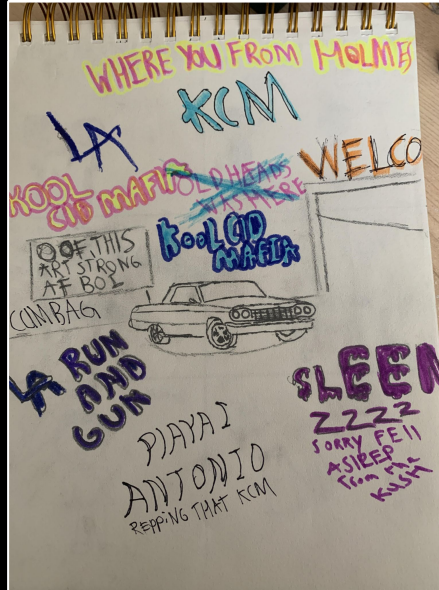 WHERE YOU FROM HOLMES
KCM
LA
WELCO
KOOL
CID MAFIA
OLD HEADS
WAS HERE
KOOL CID
MAFIA
OOF, THIS
ART STRONG
AF BOI
CUMBAG
LA RUN
AND
GUN
SLEE
ZZZZ
SORRY FEll
ASlEEP
from the
KUSH
PlAYA I
ANTONIO
REPPiNG THAT KCM